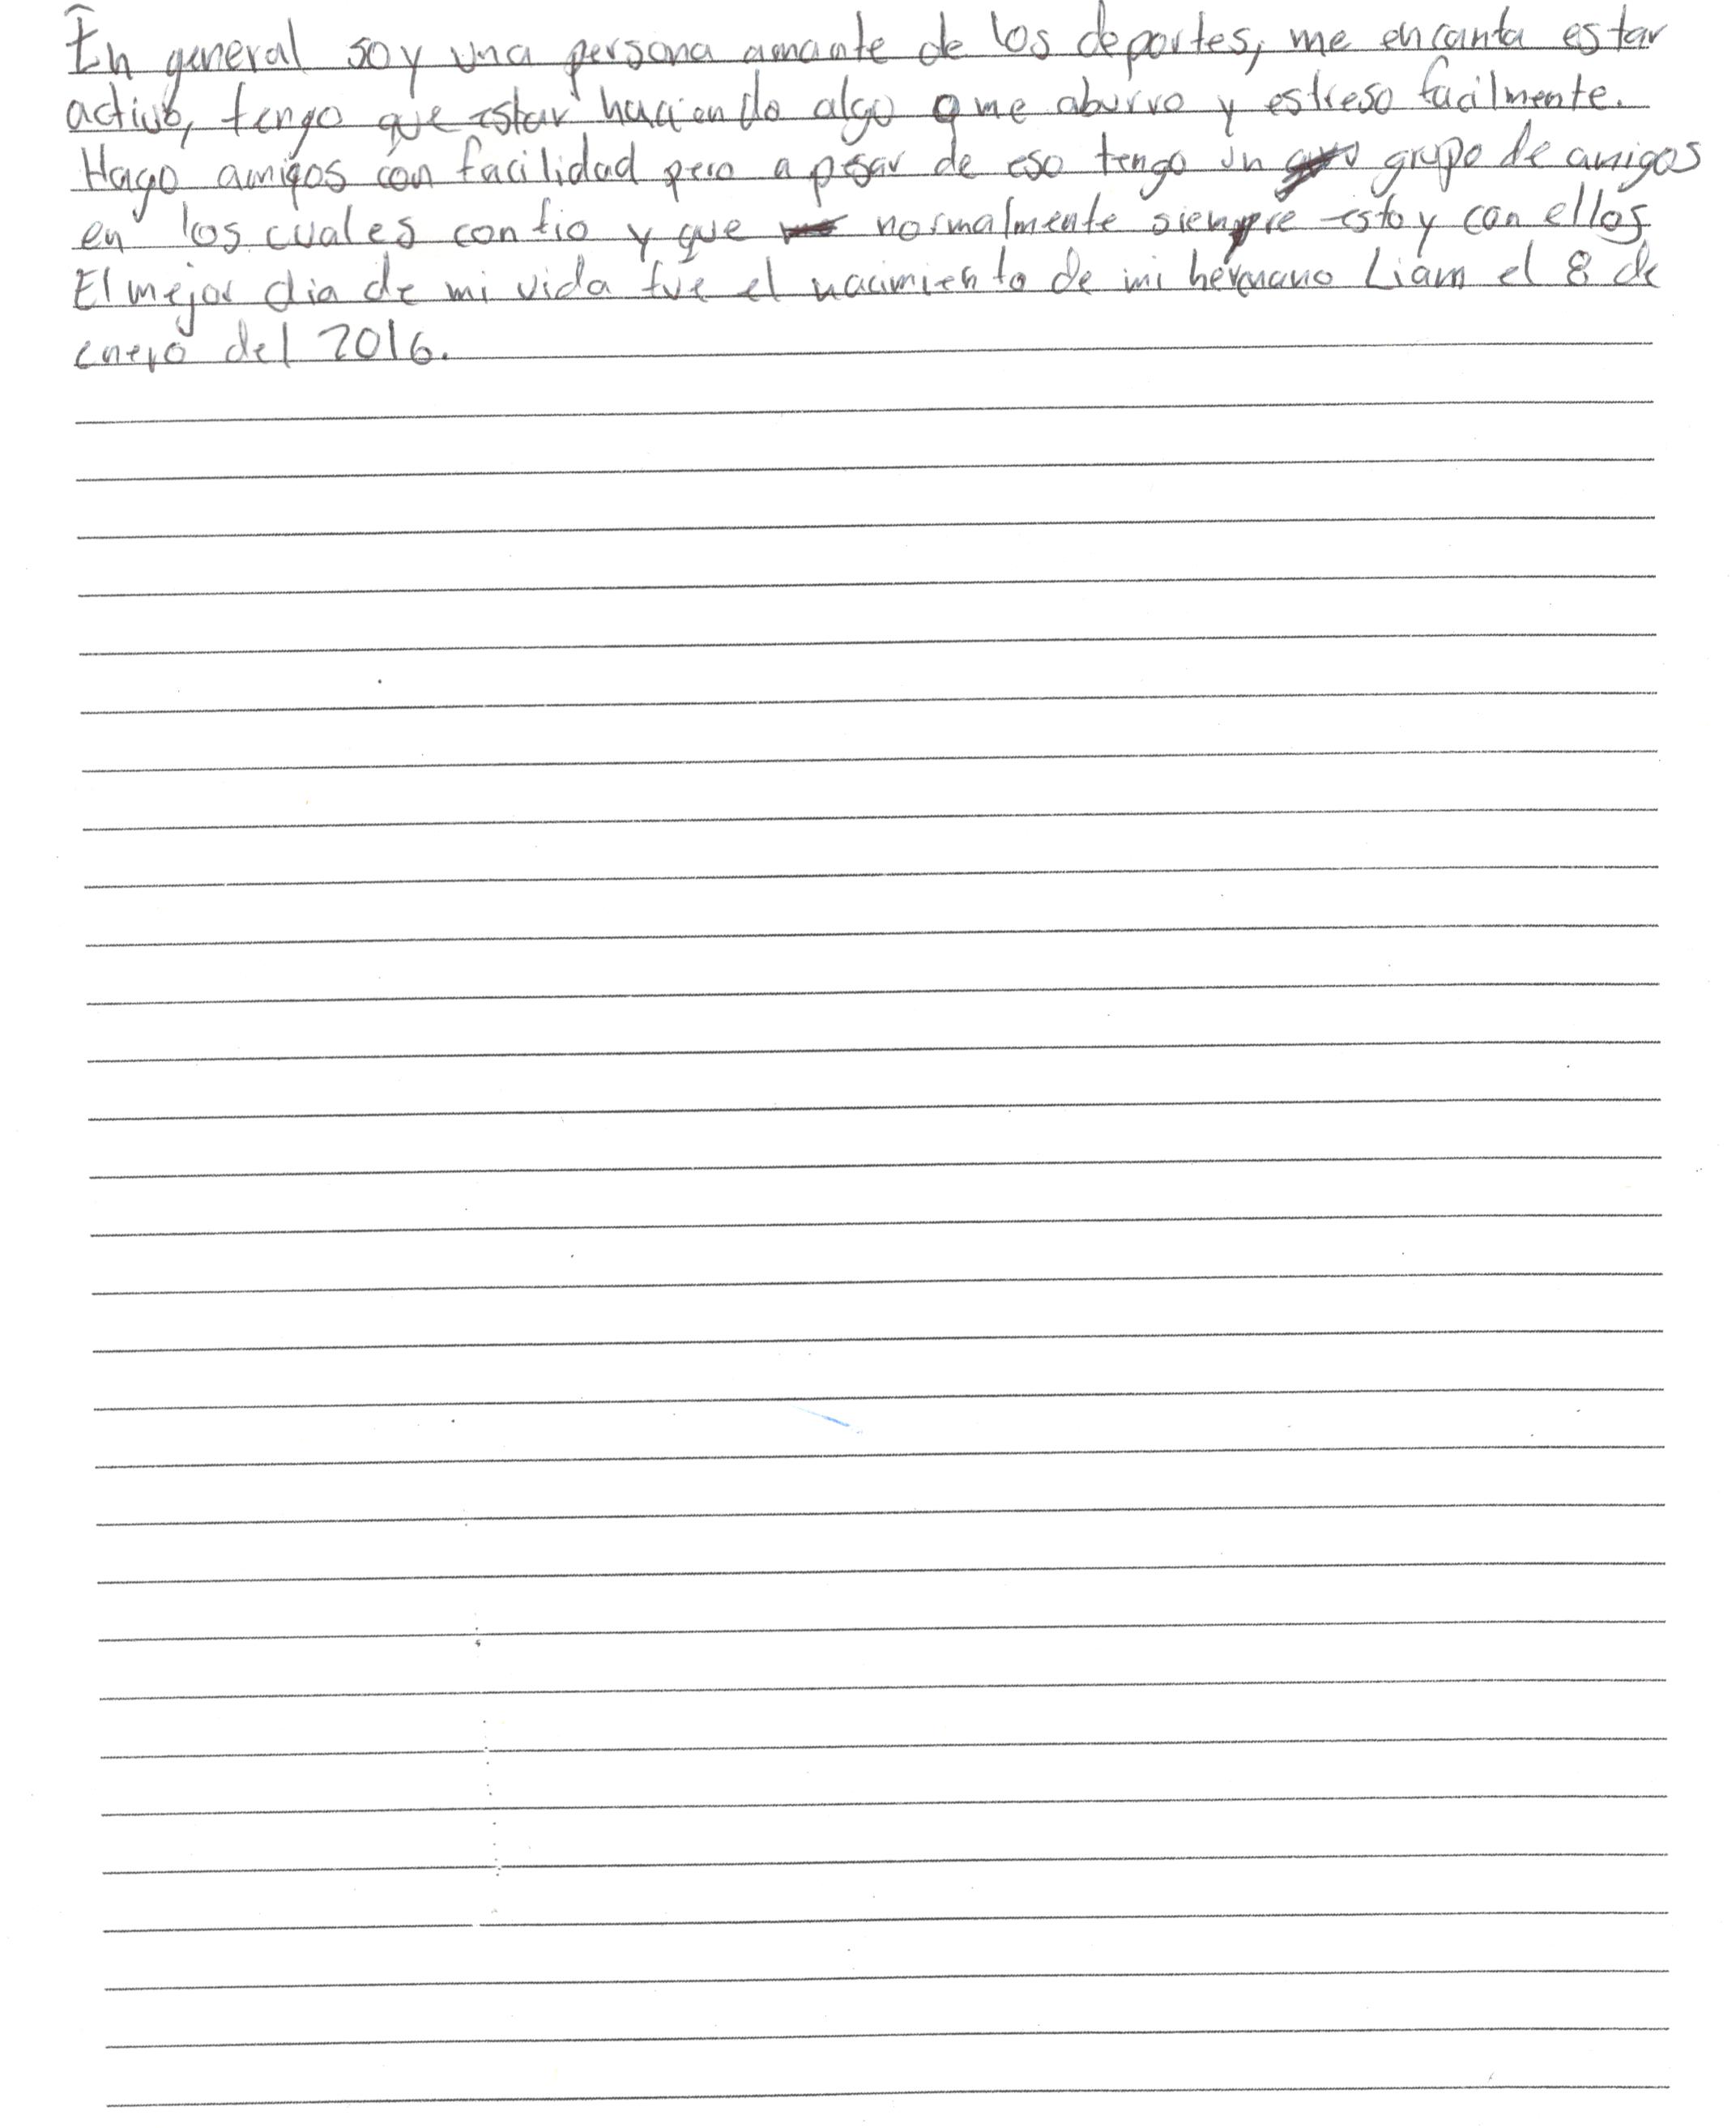 En general soy una persona amante de los deportes, me encanta estar
activo, tengo que estar haciendo algo o me aburro y estreso facilmente.
Hago amigos con facilidad pero a pesar de eso tengo un grupo de amigos
en los cuales confio y que normalmente siempre estoy con ellos.
El mejor dia de mi vida fue el nacimiento de mi hermano Liam el 8 de
enero del 2016.